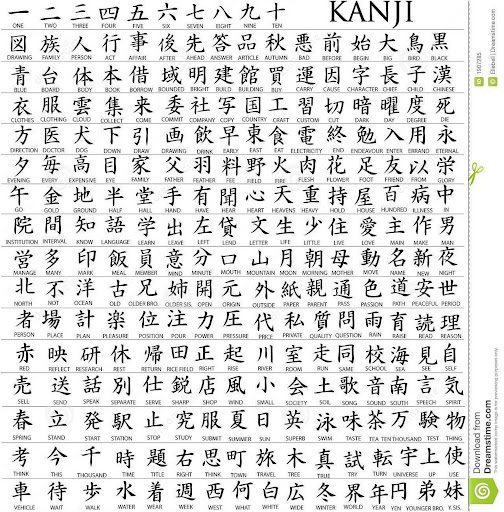 一 二 三 四 五 六 七 八 九 十 KANJI
ONE TWO THREE FOUR FIVE SIX SEVEN EIGHT NINE TEN
図 族 人 行 事 後 先 答 品 秋 悪 前 始 大 鳥 黒
DRAWING FAMILY PERSON GO AFFAIR AFTER AHEAD ANSWER ARTICLE AUTUMN BAD BEFORE BEGIN BIG BIRD BLACK
青 台 体 本 借 域 明 建 館 買 運 因 字 長 子 漢
BLUE BOARD BODY BOOK BORROW BOUNDED BRIGHT BUILD BUILDING BUY CARRY CAUSE CHARACTER CHIEF CHILD CHINESE
衣 服 雲 集 来 委 社 写 国 工 習 切 暗 曜 度 死
CLOTHES CLOTHING CLOUD COLLECT COME COMMIT COMPANY COPY COUNTRY CRAFT CUSTOM CUT DARK DAY DEGREE DIE
方 医 犬 下 引 画 飲 早 東 食 電 終 勉 入 用 永
DIRECTION DOCTOR DOG DOWN DRAW DRAWING DRINK EARLY EAST EAT ELECTRICITY END ENDEAVOUR ENTER ERRAND ETERNAL
夕 毎 高 目 家 父 羽 料 野 火 肉 花 足 友 以 栄
EVENING EVERY EXPENSIVE EYE FAMILY FATHER FEATHER FEE FIELD FIRE FLESH FLOWER FOOT FRIEND FROM GLORY
午 金 地 半 堂 手 有 聞 心 天 重 持 屋 百 病 中
GO GOLD GROUND HALF HALL HAND HAVE HEAR HEART HEAVENS HEAVY HOLD HOUSE HUNDRED ILLNESS IN
院 間 知 語 学 出 左 貸 文 生 少 住 愛 主 作 男
INSTITUTION INTERVAL KNOW LANGUAGE LEARN LEAVE LEFT LEND LETTER LIFE LITTLE LIVE LOVE MAIN MAKE MAN
営 多 印 飯 員 意 分 口 山 月 朝 母 動 名 新 夜
MANAGE MANY MARK MEAL MEMBER MIND MINUTE MOUTH MOUNTAIN MOON MORNING MOTHER MOVE NAME NEW NIGHT
北 不 洋 古 兄 姉 開 元 外 紙 親 通 色 道 安 世
NORTH NOT OCEAN OLD OLDER BRO. OLDER SIS. OPEN ORIGIN OUTSIDE PAPER PARENT PASS PASSION PATH PEACEFUL PERIOD
者 場 計 楽 位 注 力 圧 代 私 質 問 雨 育 読 理
PERSON PLACE PLAN PLEASURE POSITION POUR POWER PRESSURE PRICE PRIVATE QUALITY QUESTION RAIN RAISE READ REASON
赤 映 研 休 帰 田 正 起 川 室 走 同 校 海 見 自
RED REFLECT RESEARCH REST RETURN RICE FIELD RIGHT RISE RIVER ROOM RUN SAME SCHOOL SEA SEE SELF
売 送 話 別 仕 鋭 店 風 小 会 土 歌 音 南 言 気
SELL SEND SPEAK SEPARATE SERVE SHARP SHOP WIND SMALL SOCIETY SOIL SONG SOUND SOUTH SPEECH SPIRIT
春 立 発 駅 止 究 服 夏 日 英 泳 味 茶 万 験 物
SPRING STAND START STATION STOP STUDY SUBMIT SUMMER SUN SUPERB SWIM TASTE TEA TEN THOUSAND TEST THING
考 今 千 時 題 右 思 町 旅 木 真 試 転 宇 上 使
THINK THIS THOUSAND TIME TITLE RIGHT THINK TOWN TRAVEL TREE TRUE TRY TURN UNIVERSE UP USE
車 待 歩 水 着 週 西 何 白 広 冬 界 年 円 弟 妹
VEHICLE WAIT WALK WATER WEAR WEEK WEST WHAT WHITE WIDE WINTER WORLD YEAR YEN YOUNGER BRO. Y.SIS.
Download from
Dreamstime.com